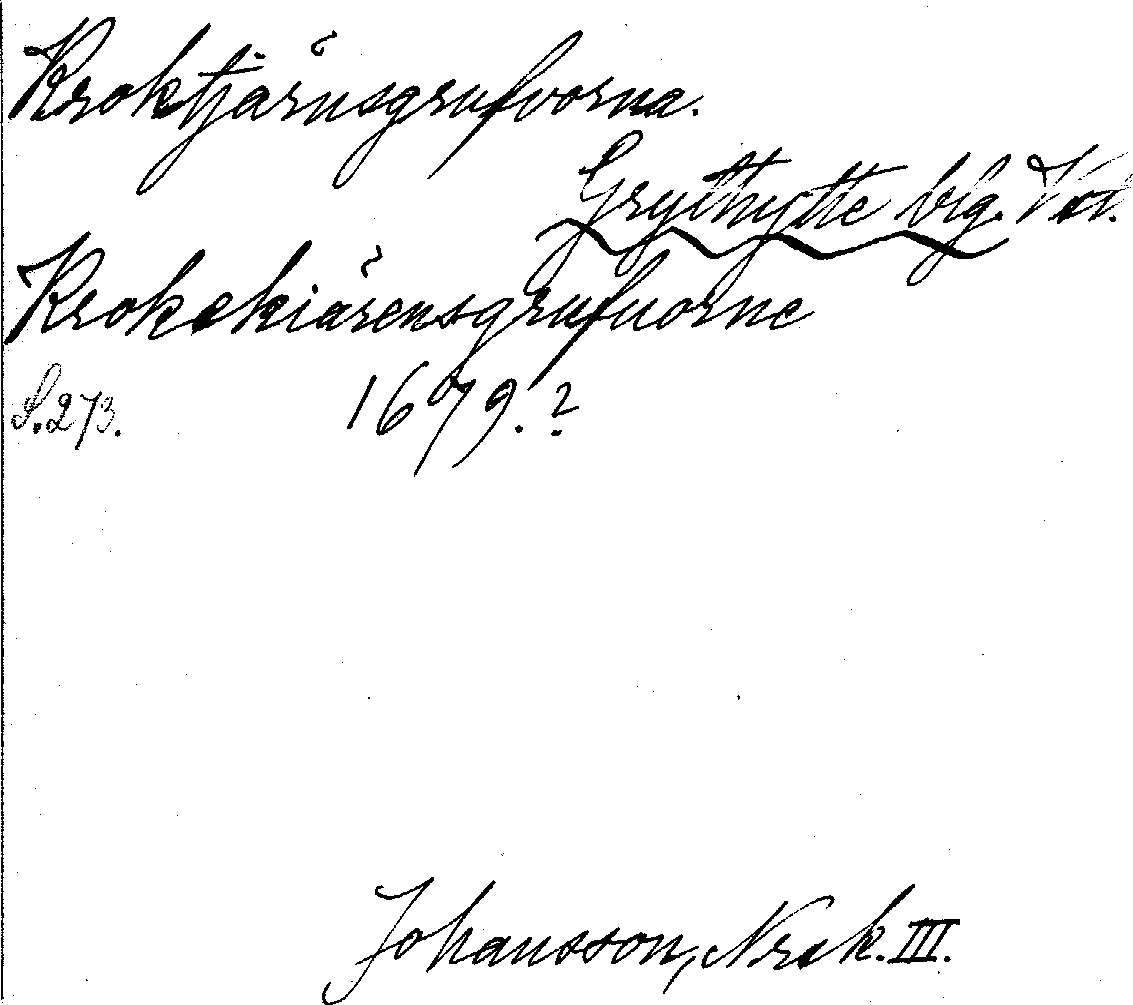 Kroktjärnsgrufvorna.
Grythytte blg. Vstl.
Krokekiärensgrufuorne
S. 273. 1679.?
Johansson, Norsk. III.